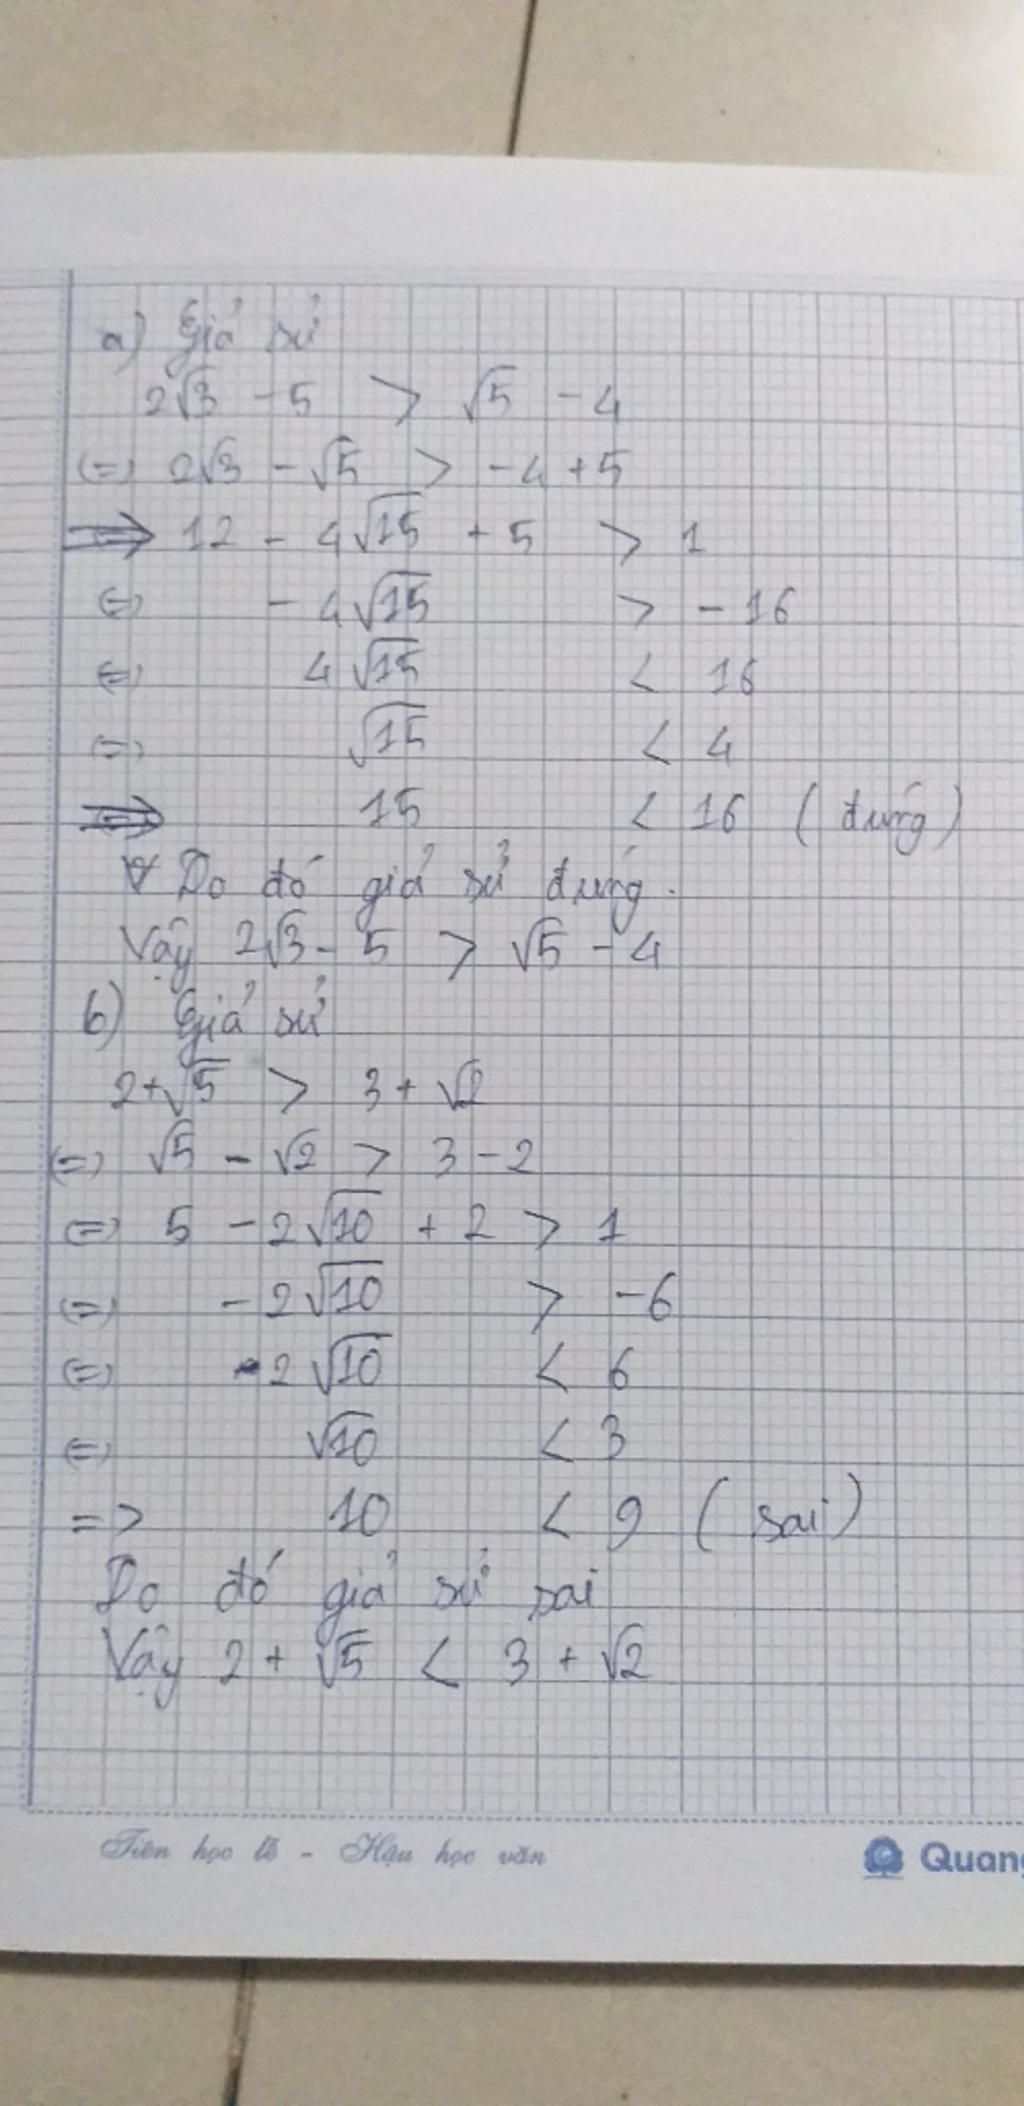 a) Giả sử
2√3 - 5 > √5 - 4
(=) 2√3 - √5 > -4 + 5
⟹ 12 - 4√15 + 5 > 1
(=) - 4√15 > - 16
(=) 4√15 < 16
(=) √15 < 4
⟹ 15 < 16 (đứng)
∀ Do đó giả sử đứng.
Vậy 2√3 - 5 > √5 - 4
b) Giả sử
2+√5 > 3 + √2
(=) √5 - √2 > 3 - 2
(=) 5 - 2√10 + 2 > 1
(=) - 2√10 > -6
(=) 2√10 < 6
(=) √10 < 3
=> 10 < 9 (sai)
Do đó giả sử sai
Vậy 2 + √5 < 3 + √2
Tiên học lễ - Hậu học văn
Quang